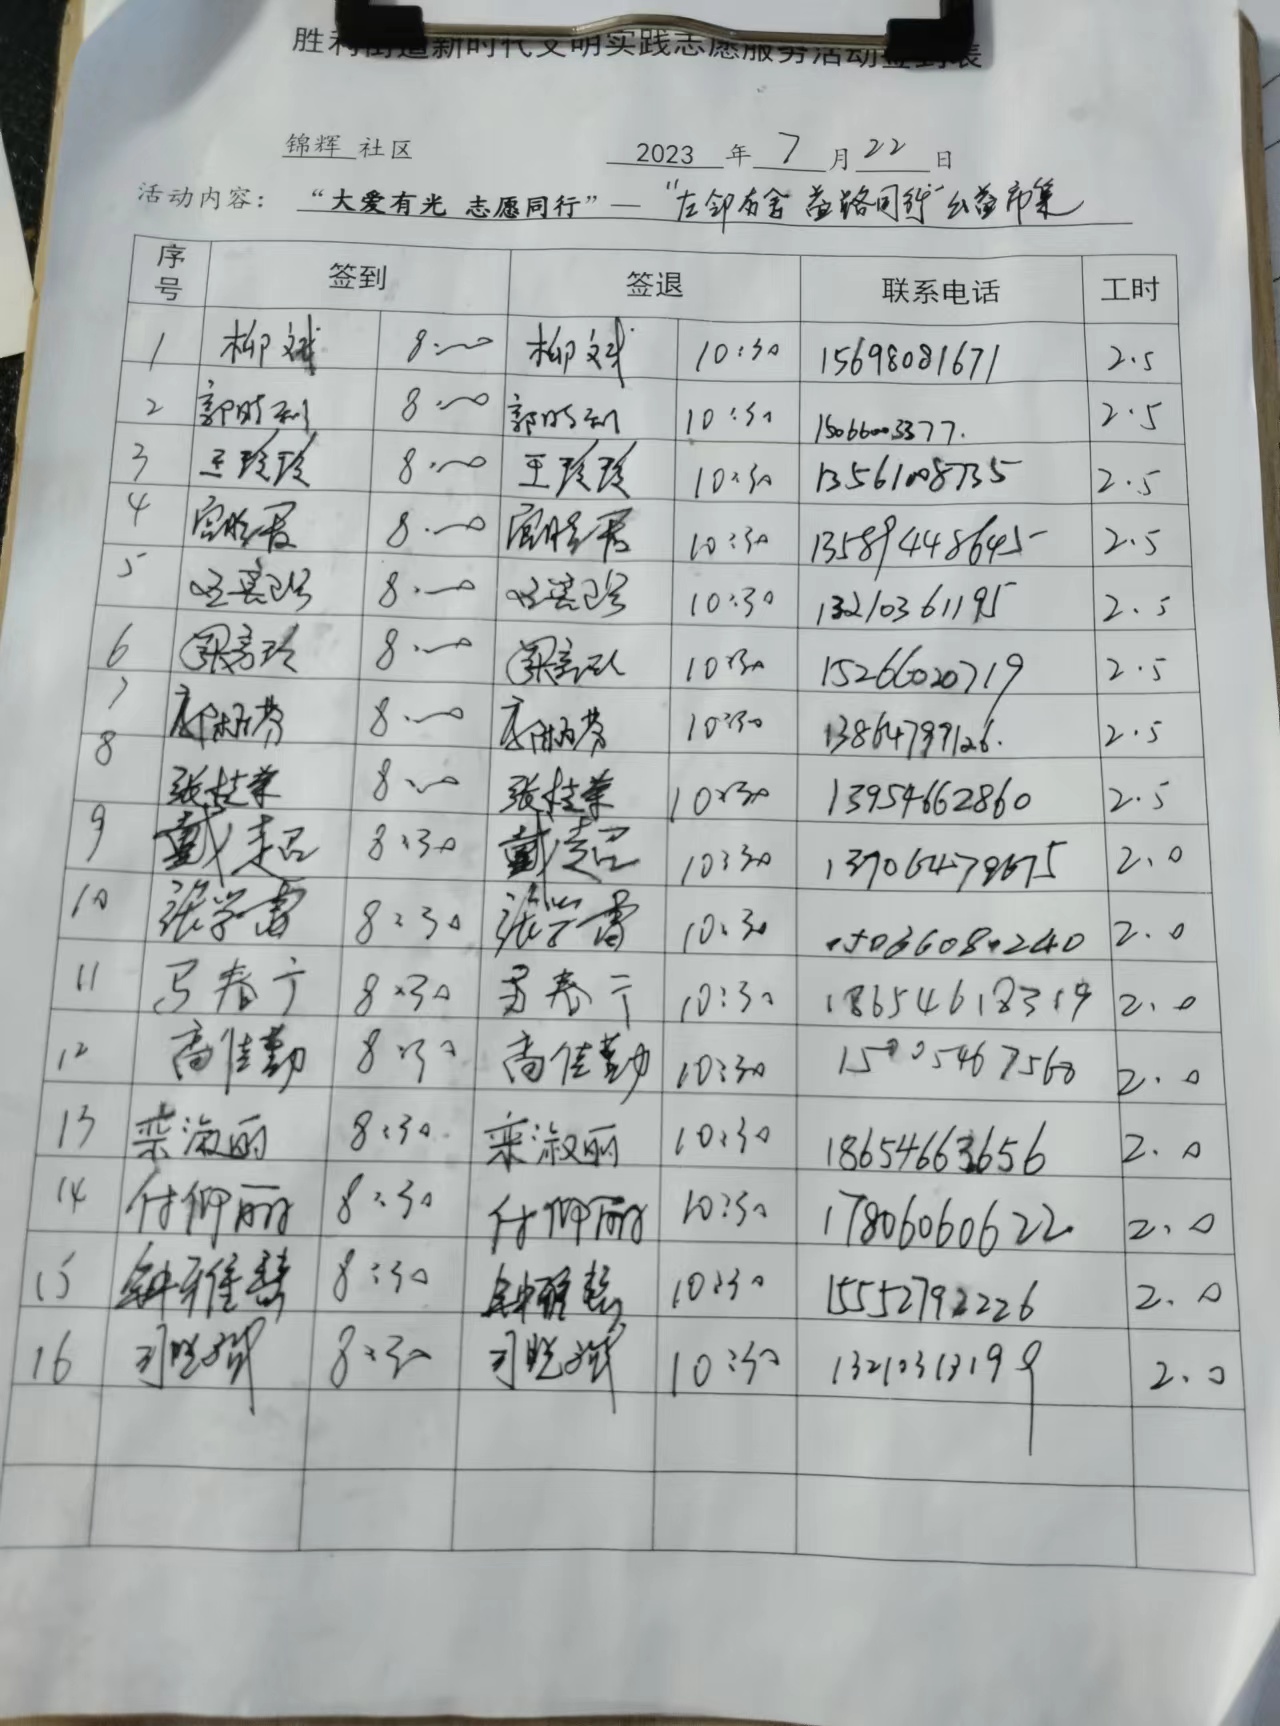 胜利街道新时代文明实践志愿服务活动签到表
锦辉 社区 2023 年 7 月 22 日
活动内容: “大爱有光 志愿同行”— “左邻右舍 益路同行”公益市集
序号 签到 签退 联系电话 工时
1 柳斌 8:00 柳斌 10:30 15698081671 2.5
2 8:00 10:30 15066003377. 2.5
3 王玲玲 8:00 王玲玲 10:30 13561008735 2.5
4 8:00 10:30 13589448645 2.5
5 8:00 10:30 13210361195 2.5
6 8:00 10:30 15266020719 2.5
7 8:00 10:30 13864799126. 2.5
8 张桂荣 8:00 张桂荣 10:30 13954662860 2.5
9 戴超 8:30 戴超 10:30 2.0
10 张学雷 8:30 张学雷 10:30 15036080240 2.0
11 马春宁 8:30 马春宁 10:30 18654618319 2.0
12 高佳勤 8:30 高佳勤 10:30 2.0
13 栾淑丽 8:30 栾淑丽 10:30 18654663656 2.0
14 付仰丽 8:30 付仰丽 10:30 17806060622 2.0
15 钟雅慧 8:30 钟雅慧 10:30 15552792226 2.0
16 司晓斌 8:30 司晓斌 10:30 13210313199 2.0